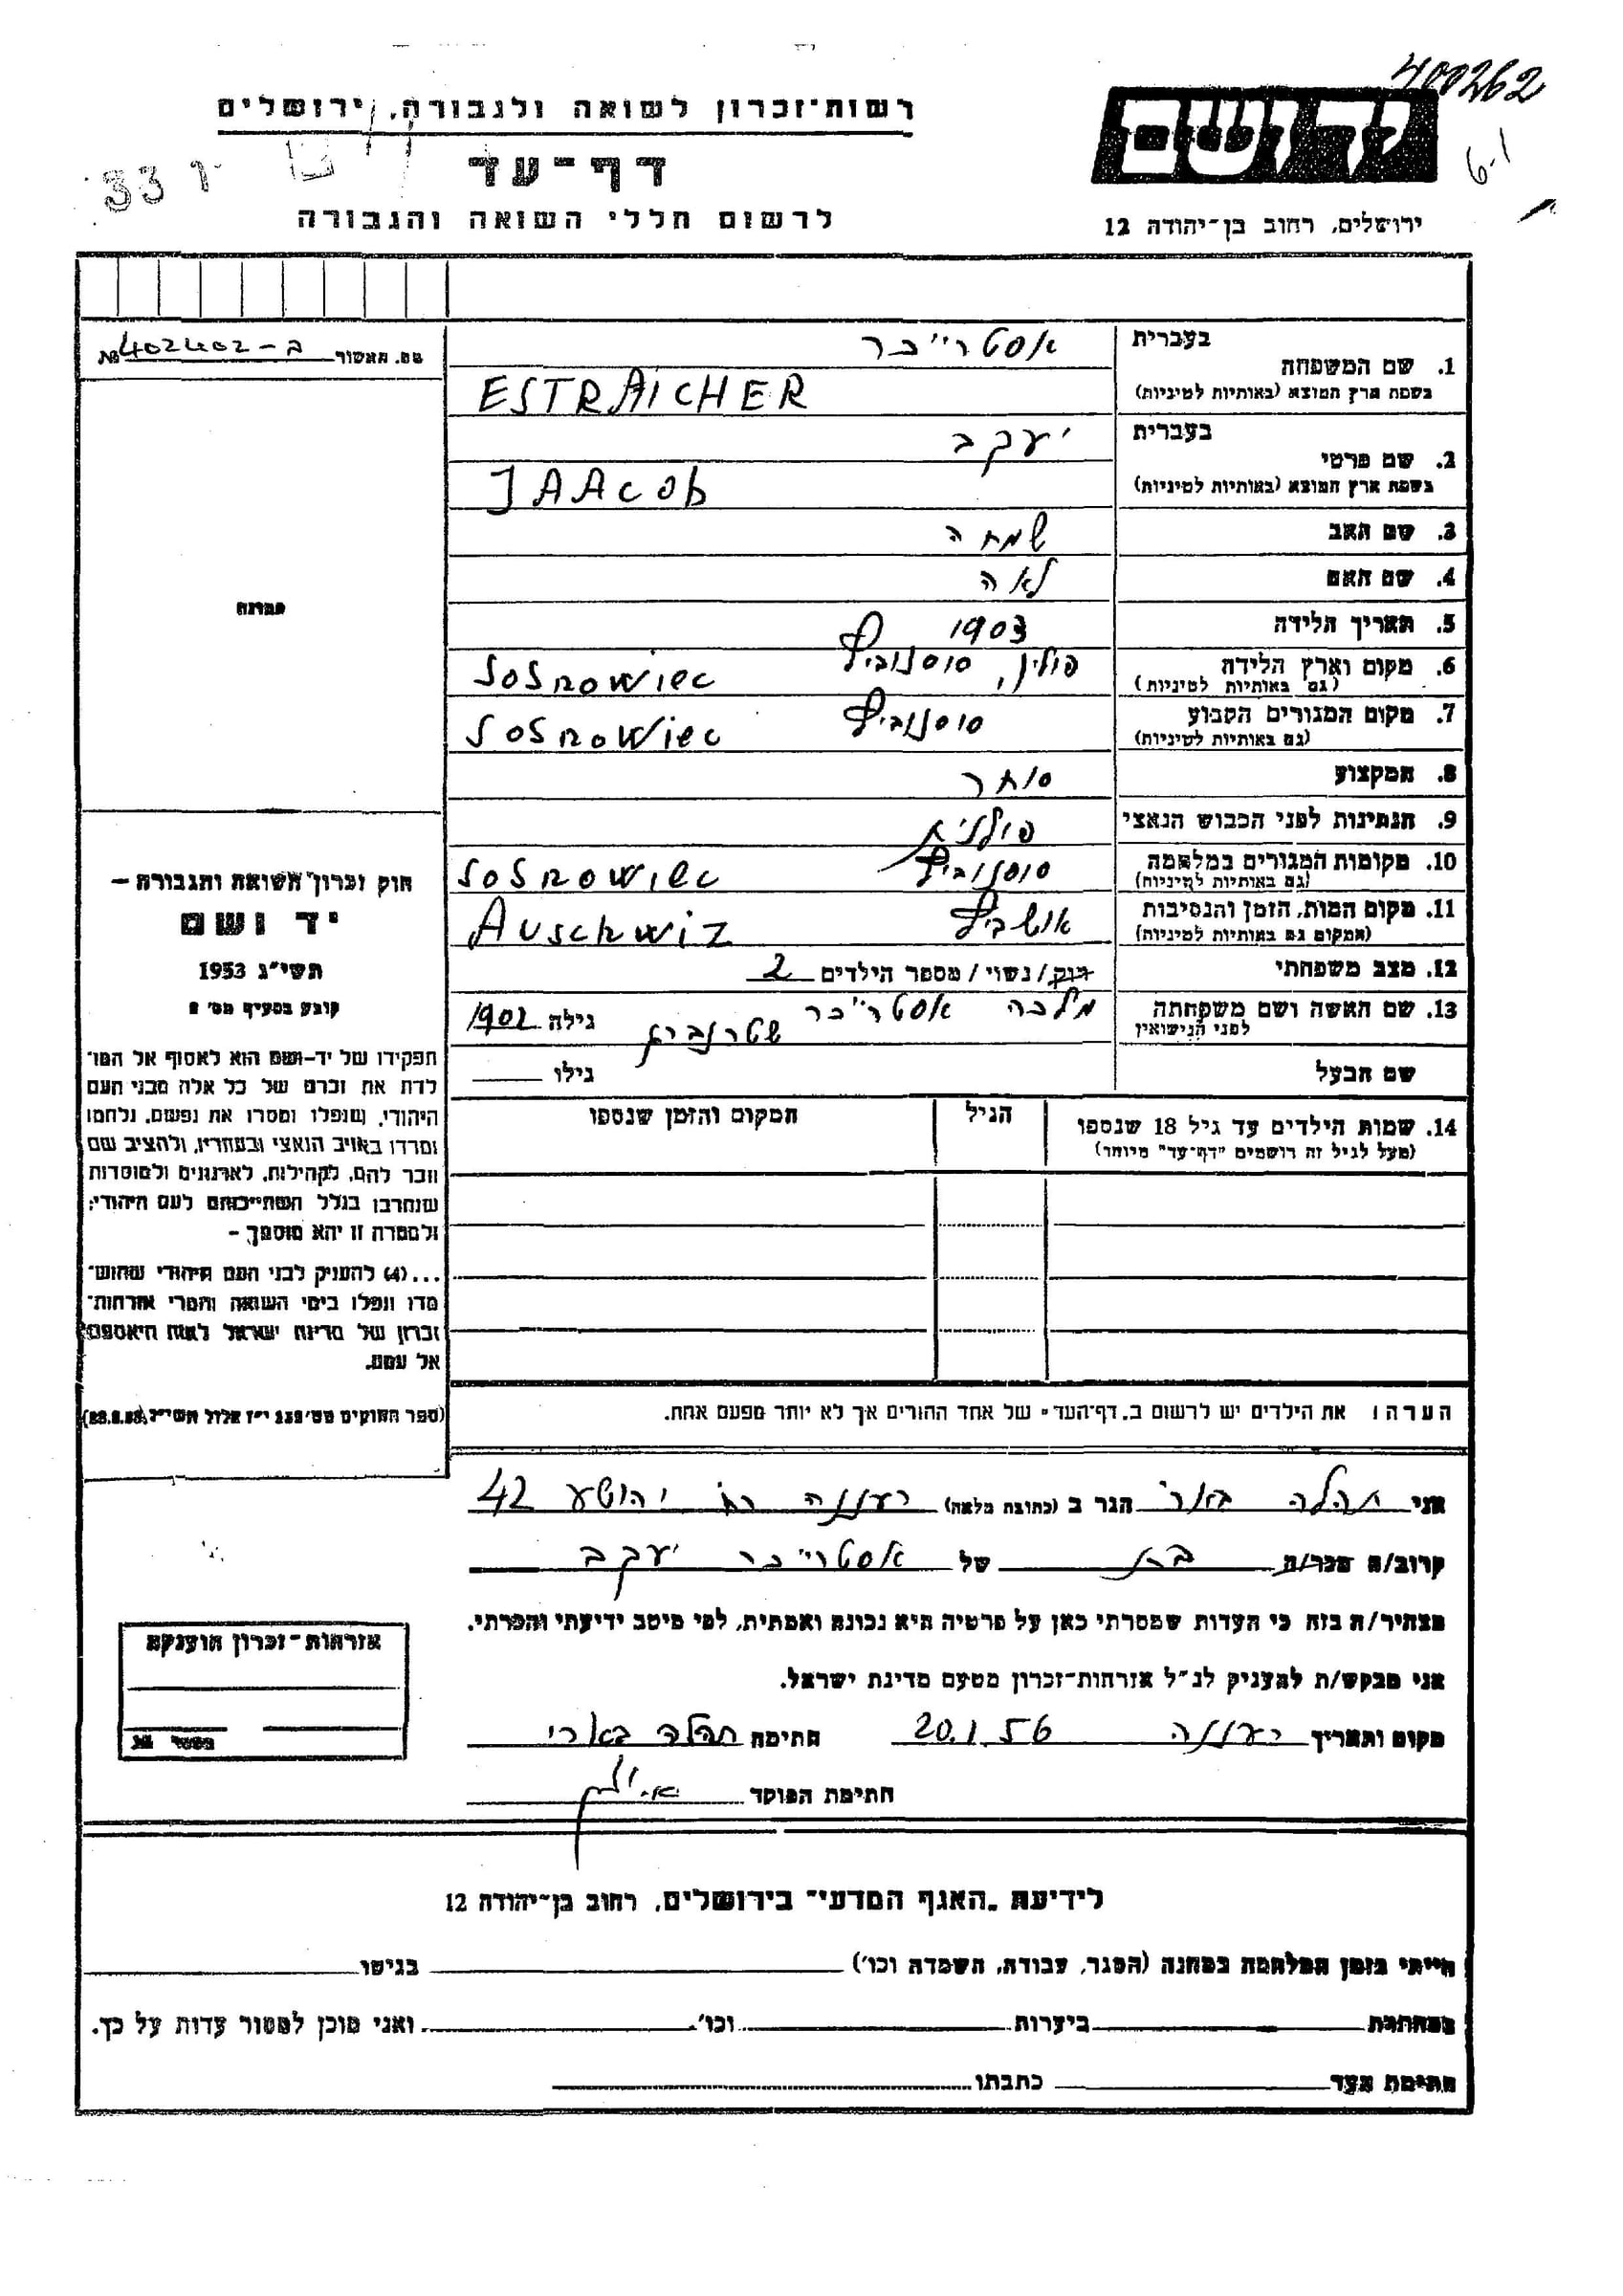 400262
רשות־זכרון לשואה ולגבורה, ירושלים
יד ושם
6-1
דף־עד
לרשום חללי השואה והגבורה
ירושלים, רחוב בן־יהודה 12
מס. האשור ב-402402 №
1. שם המשפחה
בעברית
אסטרייכר
בשפת ארץ המוצא (באותיות לטיניות)
ESTRAICHER
2. שם פרטי
בעברית
יעקב
בשפת ארץ המוצא (באותיות לטיניות)
JAAcob
3. שם האב
שמחה
4. שם האם
לאה
5. תאריך הלידה
1903
6. מקום וארץ הלידה
(גם באותיות לטיניות)
פולין, סוסנוביץ Sosnowiec
7. מקום המגורים הקבוע
(גם באותיות לטיניות)
סוסנוביץ Sosnowiec
8. המקצוע
סוחר
9. הנתינות לפני הכבוש הנאצי
פולנית
10. מקומות המגורים במלחמה
(גם באותיות לטיניות)
סוסנוביץ Sosnowiec
11. מקום המות, הזמן והנסיבות
(המקום גם באותיות לטיניות)
אושביץ Auschwiz
12. מצב משפחתי
רוק/נשוי/ מספר הילדים 2
13. שם האשה ושם משפחתה
לפני הנישואין
מלכה אסטרייכר שטרנברג גילה 1902
שם הבעל
גילו
14. שמות הילדים עד גיל 18 שנספו
(מעל לגיל זה רושמים "דף־עד" מיוחד)
הגיל
המקום והזמן שנספו
הערה: את הילדים יש לרשום ב„דף־העד" של אחד ההורים אך לא יותר מפעם אחת.
תמונה
חוק זכרון השואה והגבורה –
יד ושם
תשי"ג 1953
קובע בסעיף מס' 2
תפקידו של יד-ושם הוא לאסוף אל המו־
לדת את זכרם של כל אלה מבני העם
היהודי, שנפלו ומסרו את נפשם, נלחמו
ומרדו באויב הנאצי ובעוזריו, ולהציב שם
וזכר להם, לקהילות, לארגונים ולמוסדות
שנחרבו בגלל השתייכותם לעם היהודי;
ולמטרה זו יהא מוסמך –
...(4) להעניק לבני העם היהודי שהוש־
מדו ונפלו בימי השואה והמרי אזרחות־
זכרון של מדינת ישראל לאות היאספם
אל עמם.
אני תהלה בארי הגר ב (כתובת מלאה) רעננה רח' יהושע 42
קרוב/ה מכר/ה בת של אסטרייכר יעקב
מצהיר/ה בזה כי העדות שמסרתי כאן על פרטיה היא נכונה ואמתית, לפי מיטב ידיעתי והכרתי.
אני מבקש/ת להעניק לנ"ל אזרחות־זכרון מטעם מדינת ישראל.
מקום ותאריך רעננה 20.1.56 חתימה תהלה בארי
חתימת הפוקד
אזרחות־זכרון הוענקה
לידיעת „האגף המדעי" בירושלים, רחוב בן־יהודה 12
הייתי בזמן המלחמה במחנה (הסגר, עבודה, השמדה וכו') בגיטו
במחתרת ביערות וכו'. ואני מוכן למסור עדות על כך.
חתימת העד כתבתו